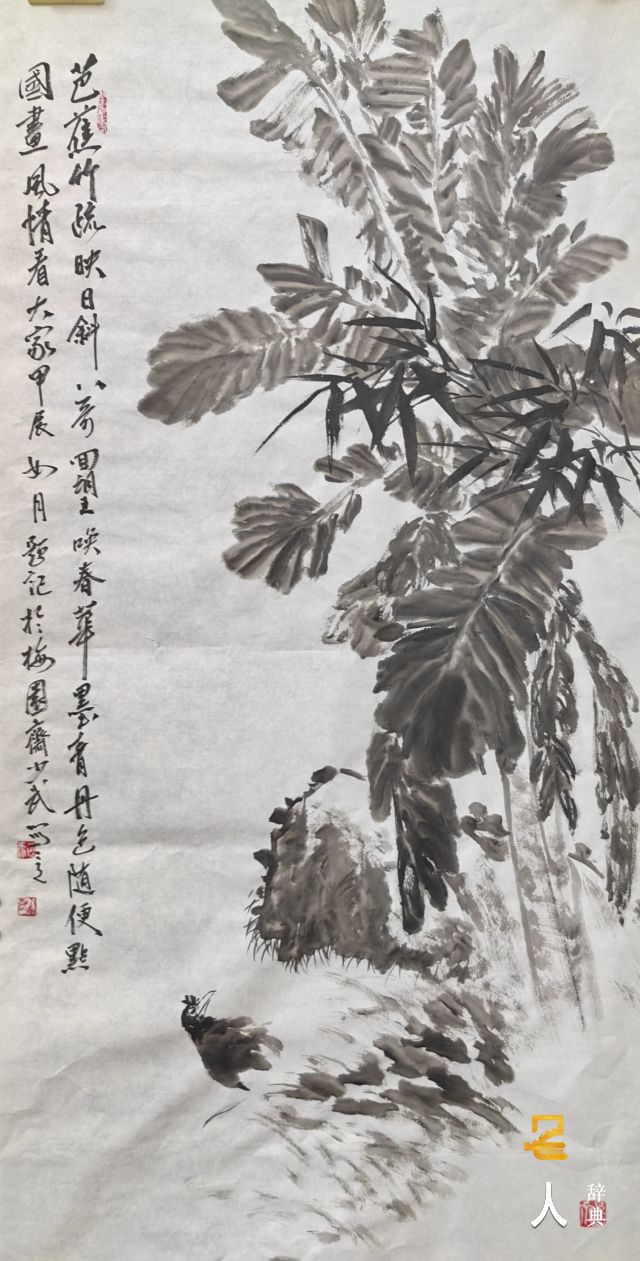 芭蕉竹疏映日斜八哥回望唤春华墨看丹色随便點
國畫風情看大家甲辰如月题记於梅園齋少武写意
名
人
辞典